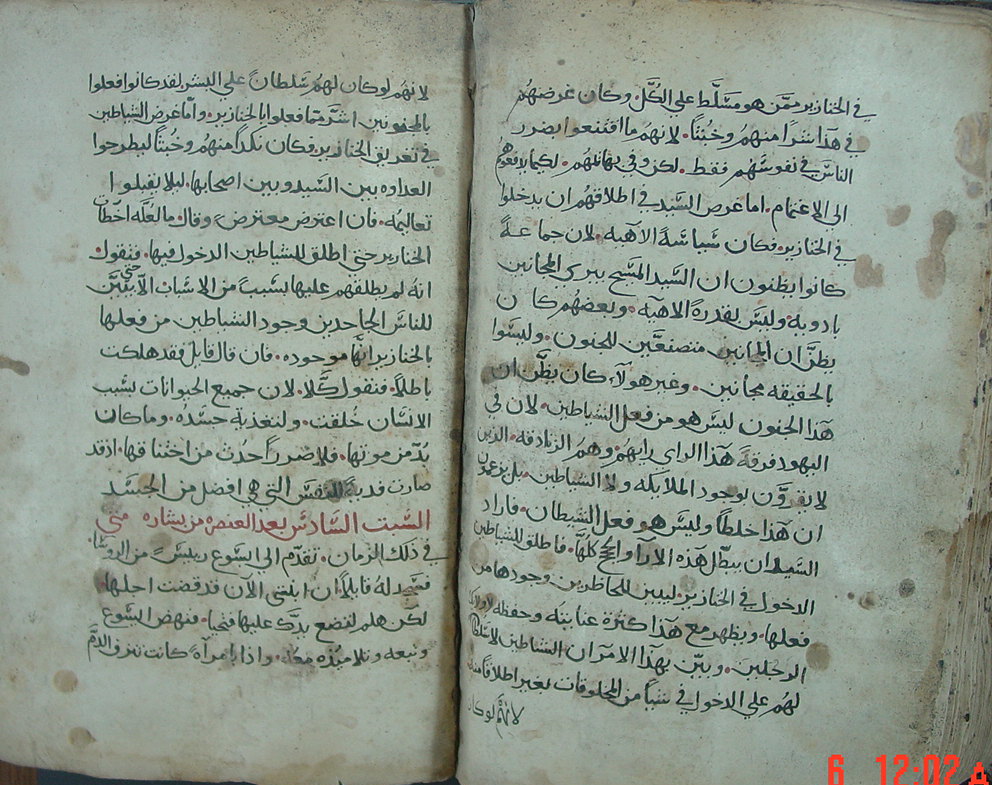 في الخنازير ممن هو مسلط علي الكل. وكان غرضهم
في هذا شراً منهم وخبثاً. لانهم ما اقتنعوا بضرر
الناس في نفوسهم فقط. لكن وفي بهايمهم. لكيما يدفعوهم
الي الاغتمام. اما غرض السيد في اطلاقهم ان يدخلوا
في الخنازير. فكان سياسة الاهيه. لان جماعة
كانوا يظنون ان السيد المسيح يبري المجانين
بادويه. وليس بقدرة الاهيه. وبعضهم كان
يظن ان المجانين متصنعين للجنون. وليسوا
بالحقيقه مجانين. وغير هولاء كان يظن ان
هذا الجنون ليس هو من فعل الشياطين. لان في
اليهود فرقة هذا الراي رايهم وهم الزنادقه. الذين
لا يقرون بوجود الملايكه ولا الشياطين. بل يزعمون
ان هذا خلطاً وليس هو فعل الشيطان. فاراد
السيد ان يبطل هذه الارا والحجج كلها. فاطلق للشياطين
الدخول في الخنازير. ليبين للحاظرين وجودها من
فعلها. ويظهر مع هذا كثرة عنايته وحفظه لاولايك
الرجلين. وبين بهذا الامر ان الشياطين لا سلطان
لهم علي الدخول في شياً من المخلوقات بغير اطلاقاً منه
لانهم لو كان
لانهم لو كان لهم سلطان علي البشر لقد كانوا فعلوا
بالمجنونين اشر مما فعلوا بالخنازير. واما غرض الشياطين
في تغريق الخنازير. فكان نكداً منهم وخبثاً ليطرحوا
العداوه بين السيد وبين اصحابها. ليلا يقبلوا
تعاليمه. فان اعترض معترض وقال. ما العله اخطان
الخنازير حتي اطلق للشياطين الدخول فيها. فنقول.
انه لم يطلقهم عليها بسبب من الاسباب الا حتي يبين
للناس الجاحدين وجود الشياطين من فعلها
بالخنازير انها موجوده. فان قال قايل فقد هلكت
باطلاً. فنقول كلا. لان جميع الحيوانات لسبب
الانسان خُلقت. ولتغذية جسده. وما كان
بدّ من موتها. فلا ضرراً حدث من اختناقها. اذ قد
صارت فدية للنفس التي هي افضل من الجسد
السبت السادس بعد العنصره من بشاره متي
في ذلك الزمان. تقدم الي يسوع رييس من الروسا.
فسجد له قايلاً ان ابنتي الآن قد قضت اجلها
لكن هلم لتضع يدك عليها فتحيا. فنهض يسوع
وتبعه وتلاميذه معه. واذا بامرآه كانت تنزف الدم